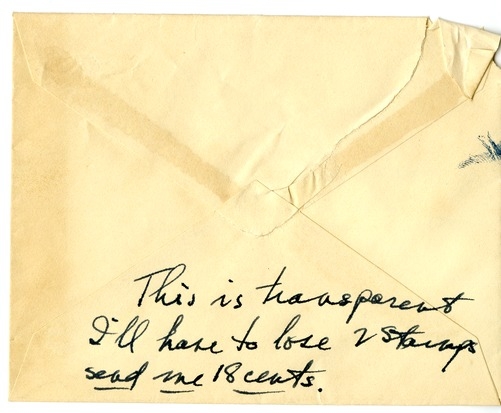 This is transparent
I'll have to lose 2 stamps
send me 18 cents.